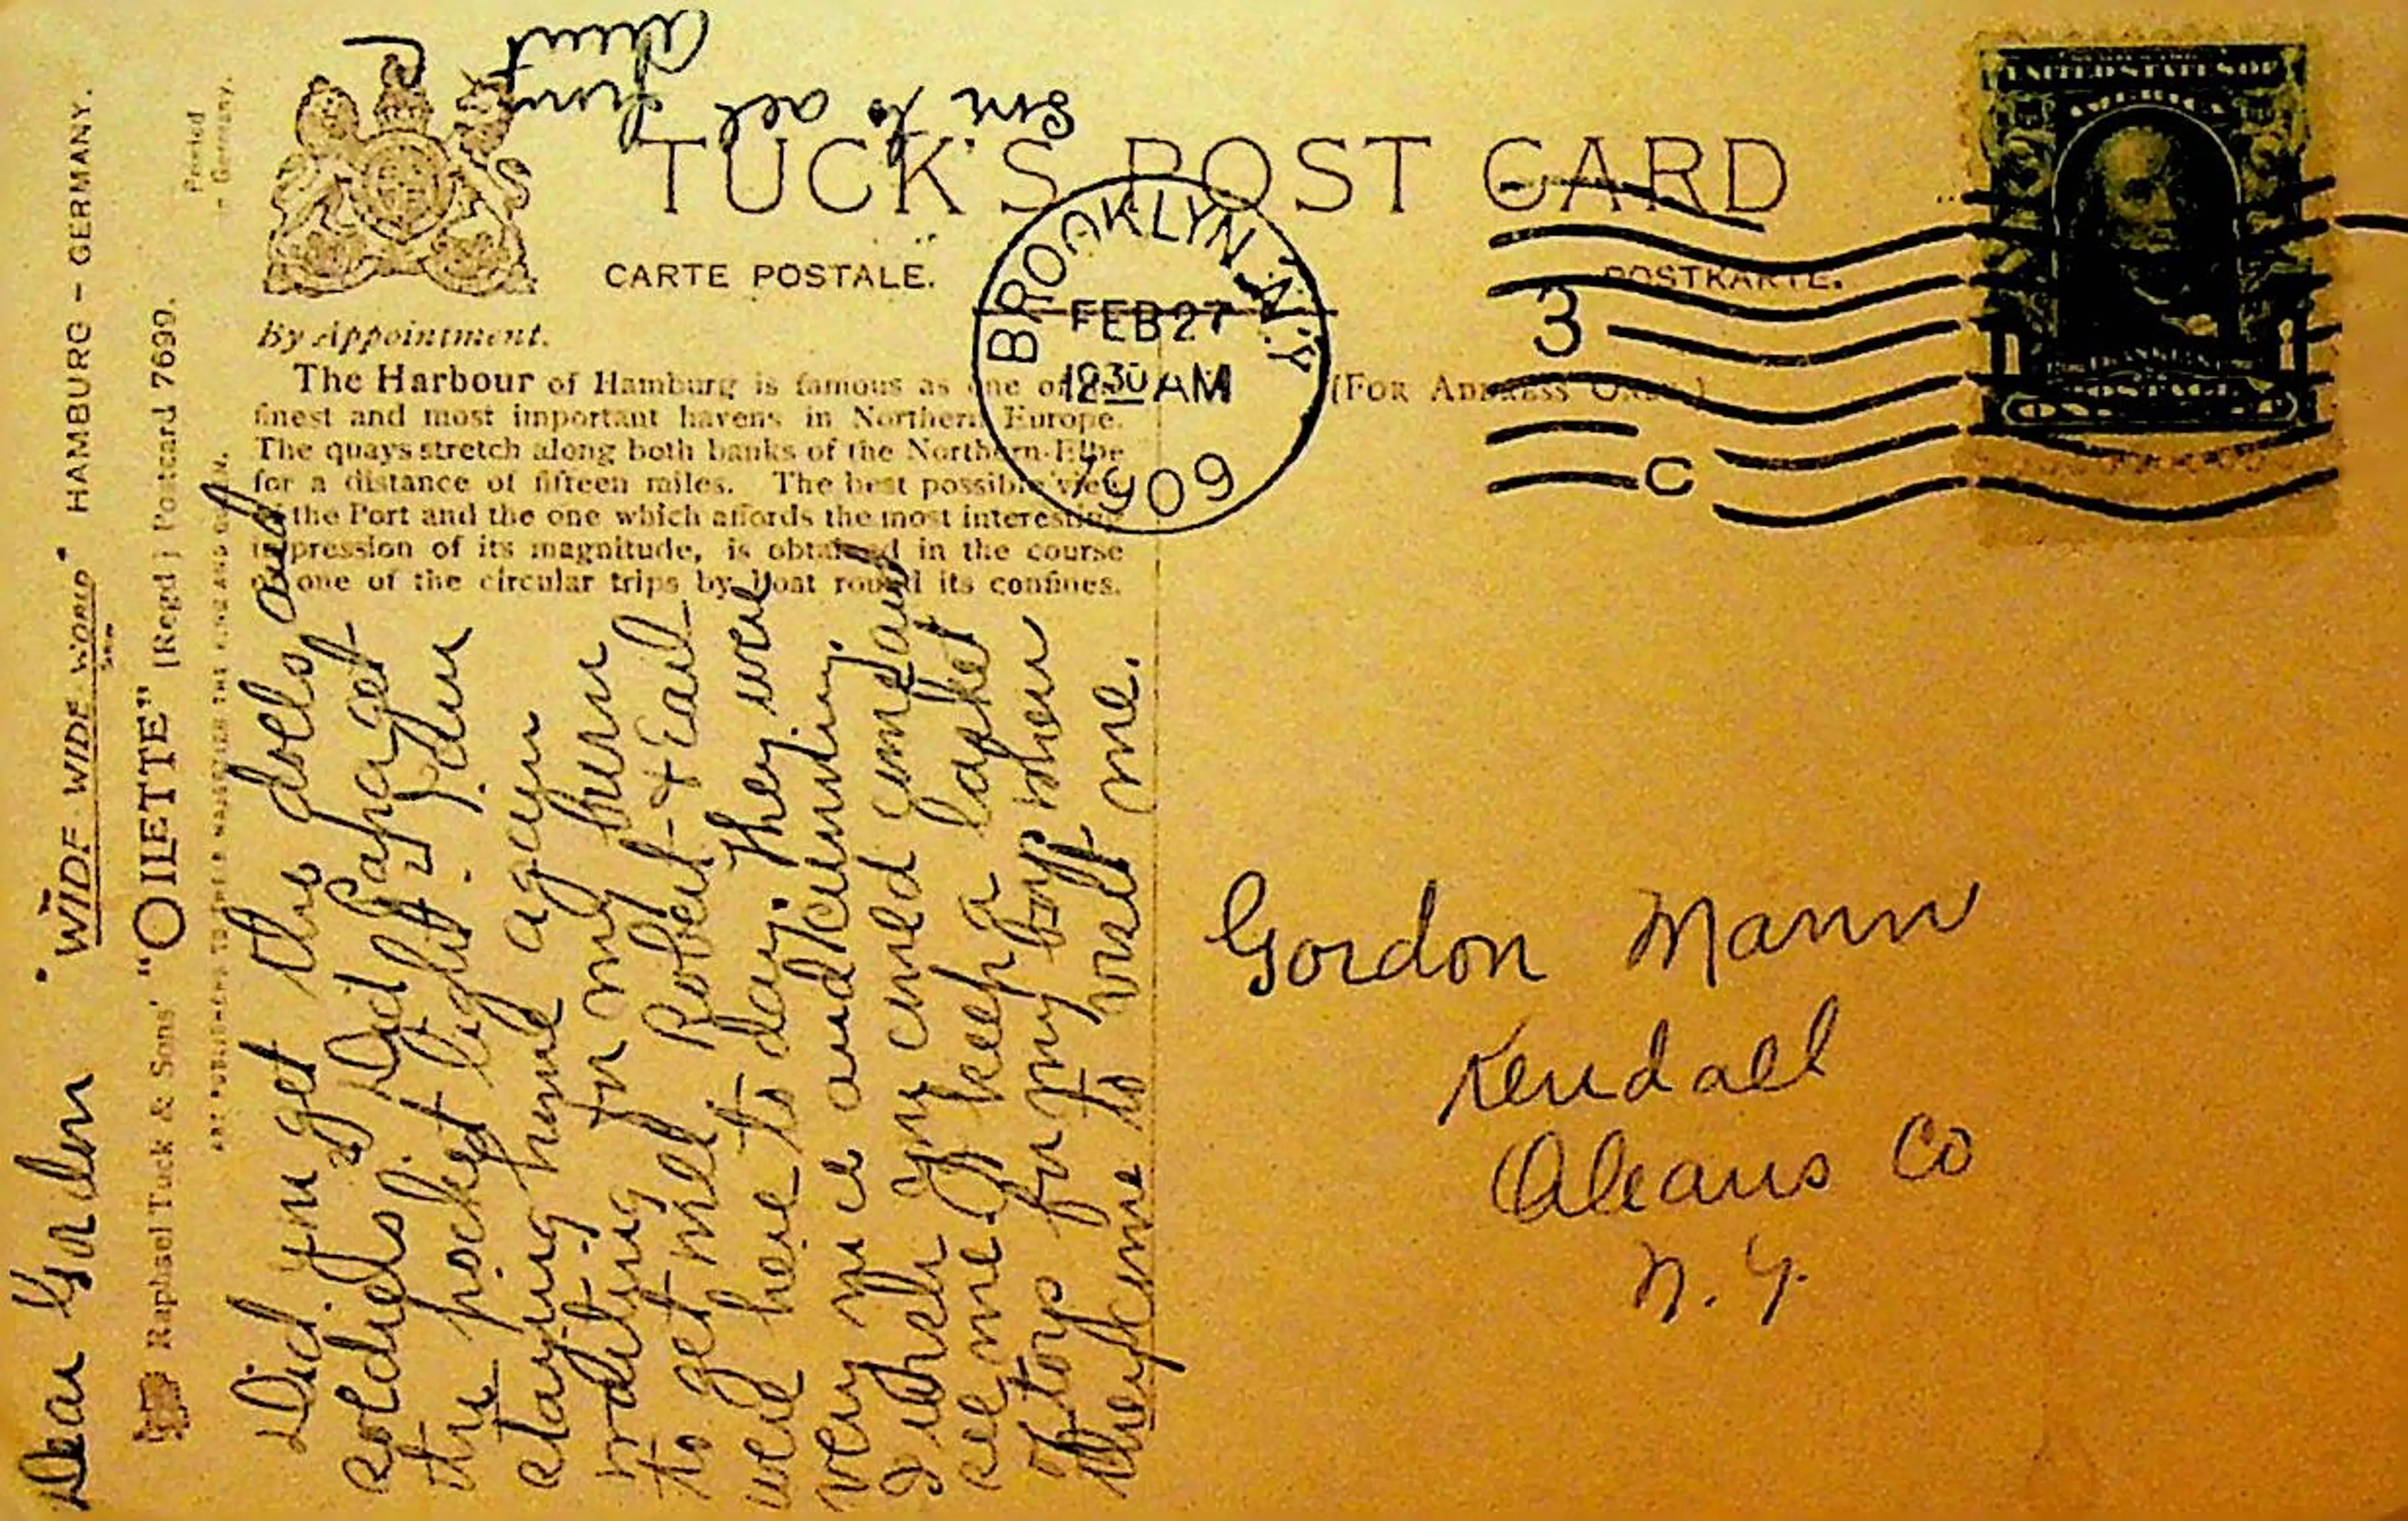 "WIDE-WIDE-WORLD" HAMBURG - GERMANY.
Raphael Tuck & Sons' "OILETTE" [Regd.] Postcard 7699.
ART PUBLISHERS TO THEIR MAJESTIES THE KING AND QUEEN.
Printed
in Germany.
TUCK'S POST CARD
CARTE POSTALE.
POSTKARTE.
By Appointment.
(FOR ADDRESS ONLY.)
The Harbour of Hamburg is famous as one of the
finest and most important havens in Northern Europe.
The quays stretch along both banks of the Northern-Elbe
for a distance of fifteen miles. The best possible view
of the Port and the one which affords the most interesting
impression of its magnitude, is obtained in the course
of one of the circular trips by boat round its confines.
BROOKLYN, N.Y.
FEB 27
12 30 AM
1909
3
C
UNITED STATES OF
AMERICA
FRANKLIN
POSTAGE
Dear Gordon
Did you get the dolls and
soldiers? Did Papa get
the pocket light? I am
staying home again
waiting for my burn
to get well Robert & Earl
were here to day. They were
very nice and cunning.
I wish you could come and
see me. I keep a basket
of toys for my boys when
they come to visit me.
love to all from
Aunt
Gordon Mann
Kendall
Orleans Co
N.Y.